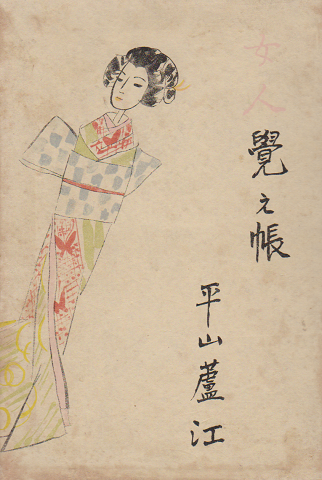 女人
覺え帳
平山蘆江